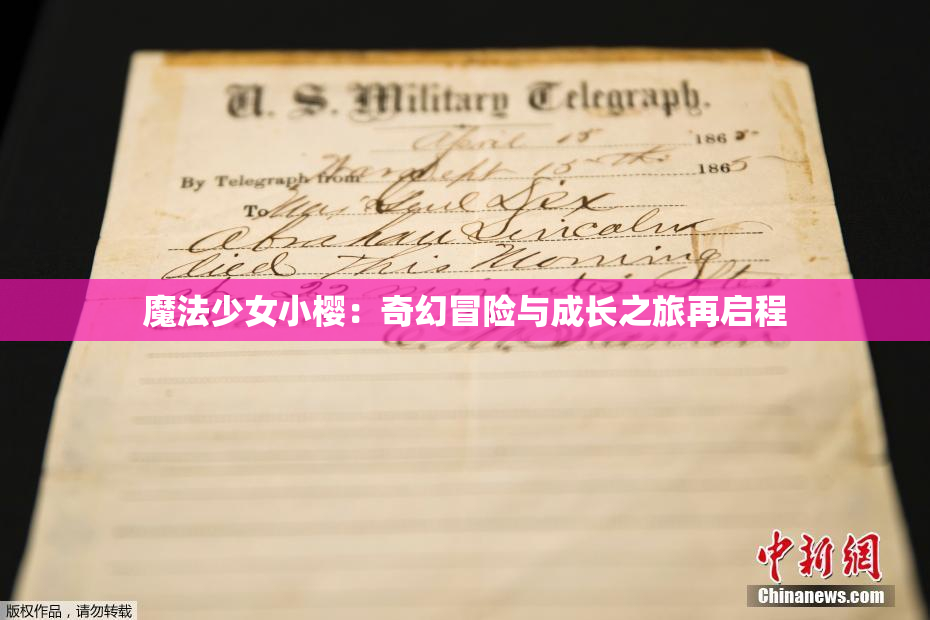 U. S. Military Telegraph.
April 15 1865
By Telegraph from War Dept 15th 1865
To Maj Genl Dix
Abraham Lincoln
died This Morning
at 22 minutes after
魔法少女小樱：奇幻冒险与成长之旅再启程
E. M. Stanton
中新网
Chinanews.com
版权作品，请勿转载